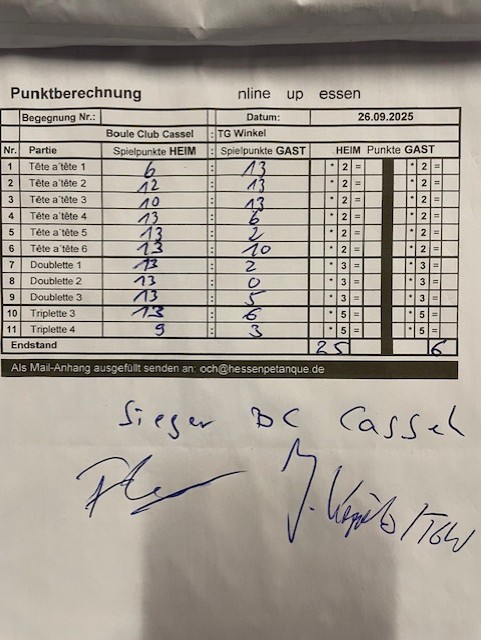 Punktberechnung nline up essen
Begegnung Nr.: Datum: 26.09.2025
Boule Club Cassel : TG Winkel
Nr. Partie Spielpunkte HEIM : Spielpunkte GAST HEIM Punkte GAST
1 Tête a´tête 1 6 : 13 * 2 = * 2 =
2 Tête a´tête 2 12 : 13 * 2 = * 2 =
3 Tête a´tête 3 10 : 13 * 2 = * 2 =
4 Tête a´tête 4 13 : 6 * 2 = * 2 =
5 Tête a´tête 5 13 : 2 * 2 = * 2 =
6 Tête a´tête 6 13 : 10 * 2 = * 2 =
7 Doublette 1 13 : 2 * 3 = * 3 =
8 Doublette 2 13 : 0 * 3 = * 3 =
9 Doublette 3 13 : 5 * 3 = * 3 =
10 Triplette 3 13 : 6 * 5 = * 5 =
11 Triplette 4 9 : 3 * 5 = * 5 =
Endstand 25 6
Als Mail-Anhang ausgefüllt senden an: och@hessenpetanque.de
Sieger BC Cassel
J. /TGW